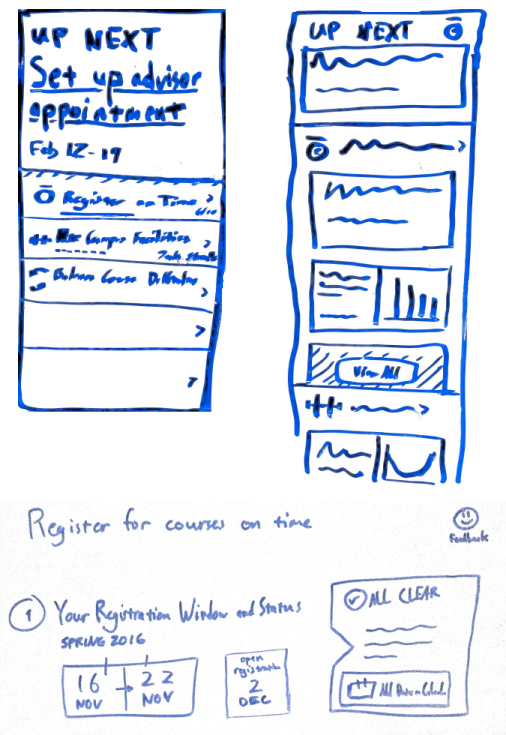 UP NEXT
Set up advisor
appointment
Feb 12-19
Register on Time
Campus Facilities
Business Course
UP NEXT
View All
Register for courses on time
Feedback
1 Your Registration Window and Status
SPRING 2016
16 NOV → 22 NOV
open registration
2
DEC
ALL CLEAR